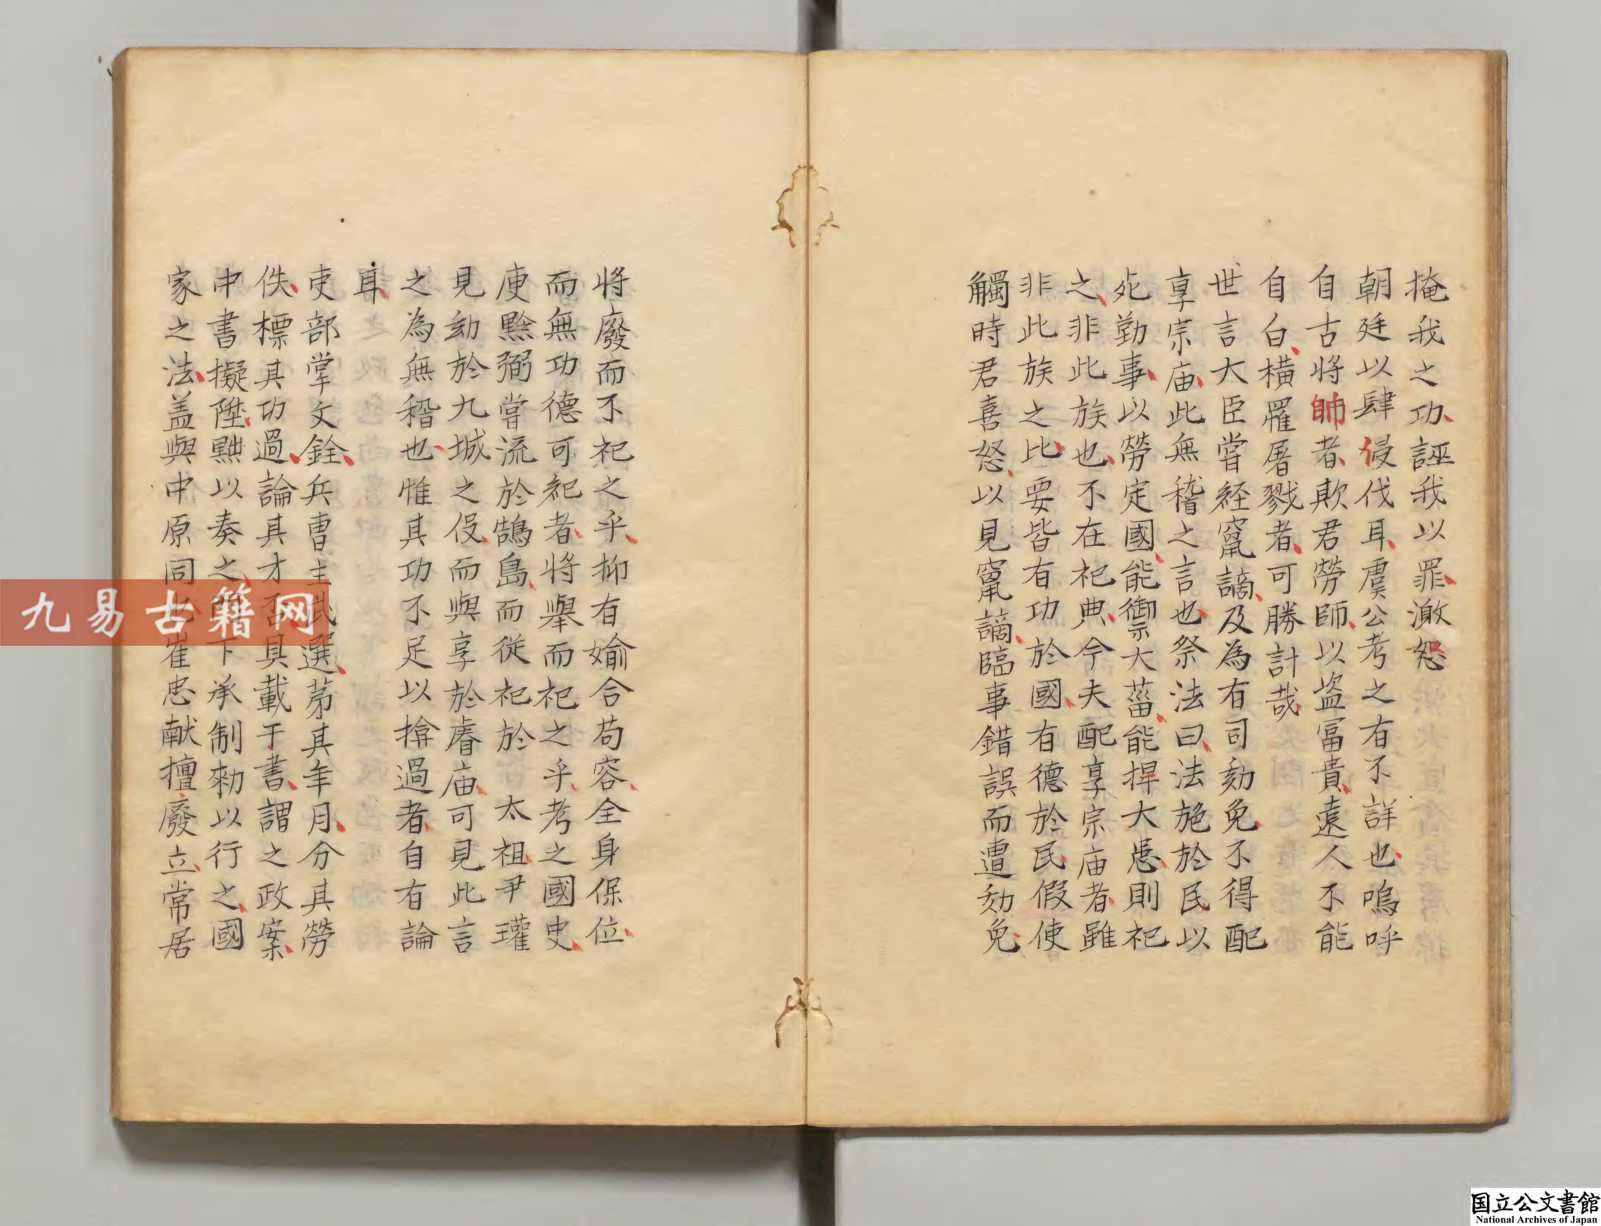 掩我之功誣我以罪激怒
朝廷以肆侵伐耳虞公考之有不詳也嗚呼
自古将帥者欺君勞師以盗冨貴遠人不能
自白横羅屠戮者可勝計哉
世言大臣甞経竄謫及為有司劾免不得配
享宗庙此無稽之言也祭法曰法施於民以
死勤事以勞定國能御大菑能捍大患則祀
之非此族也不在祀典今夫配享宗庙者雖
非此族之比要皆有功於國有德於民假使
觸時君喜怒以見竄謫臨事錯誤而遭劾免
将廢而不祀之乎抑有婾合苟容全身保位
而無功德可紀者将舉而祀之乎考之國史
庾黔弼甞流於鵠島而従祀於 太祖尹瓘
見劾於九城之役而與享於睿庙可見此言
之為無稽也惟其功不足以揜過者自有論
耳
吏部掌文銓兵曹主武選苐其年月分其勞
佚標其功過論其才否具載于書謂之政案
中書擬陞黜以奏之門下承制勑以行之國
家之法盖與中原同也崔忠献擅廢立常居
九易古籍网
国立公文書館
National Archives of Japan